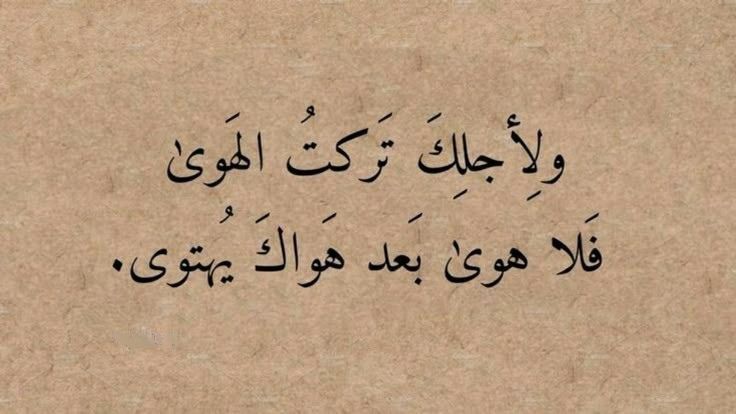 ولِأجلِكَ تَركتُ الهَوىٰ
فَلا هوىٰ بَعد هَواكَ يُهتوى.